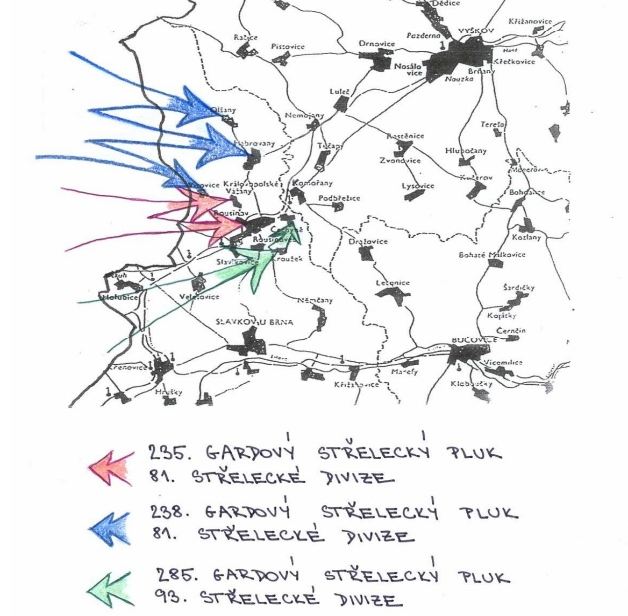 Dědice
VYŠKOV
Křižanovice
Pazderna
Hošť
Račice
Pístovice
Drnovice
Nosálovice
Křečkovice
Brňany
Nouzka
Luleč
Olšany
Nemojany
Habrovany
Tučapy
Rostěnice
Zvonovice
Hlubočany
Terešov
Manerov
Kučerov
Lysovice
Bohdalice
Královopolské
Vážany
Komořany
Podbřežice
Rousínov
Čechyně
Rousínovec
Kroužek
Slavíkovice
Kozlany
Dražovice
Bohaté Málkovice
Letonice
Šardičky
Kojátky
Holubice
Velešovice
Němčany
Černčín
SLAVKOV U BRNA
BUČOVICE
Vícemilice
Křenovice
Marefy
Křižanovice
Kloboučky
Hrušky
235. GARDOVÝ STŘELECKÝ PLUK
81. STŘELECKÉ DIVIZE
238. GARDOVÝ STŘELECKÝ PLUK
81. STŘELECKÉ DIVIZE
285. GARDOVÝ STŘELECKÝ PLUK
93. STŘELECKÉ DIVIZE